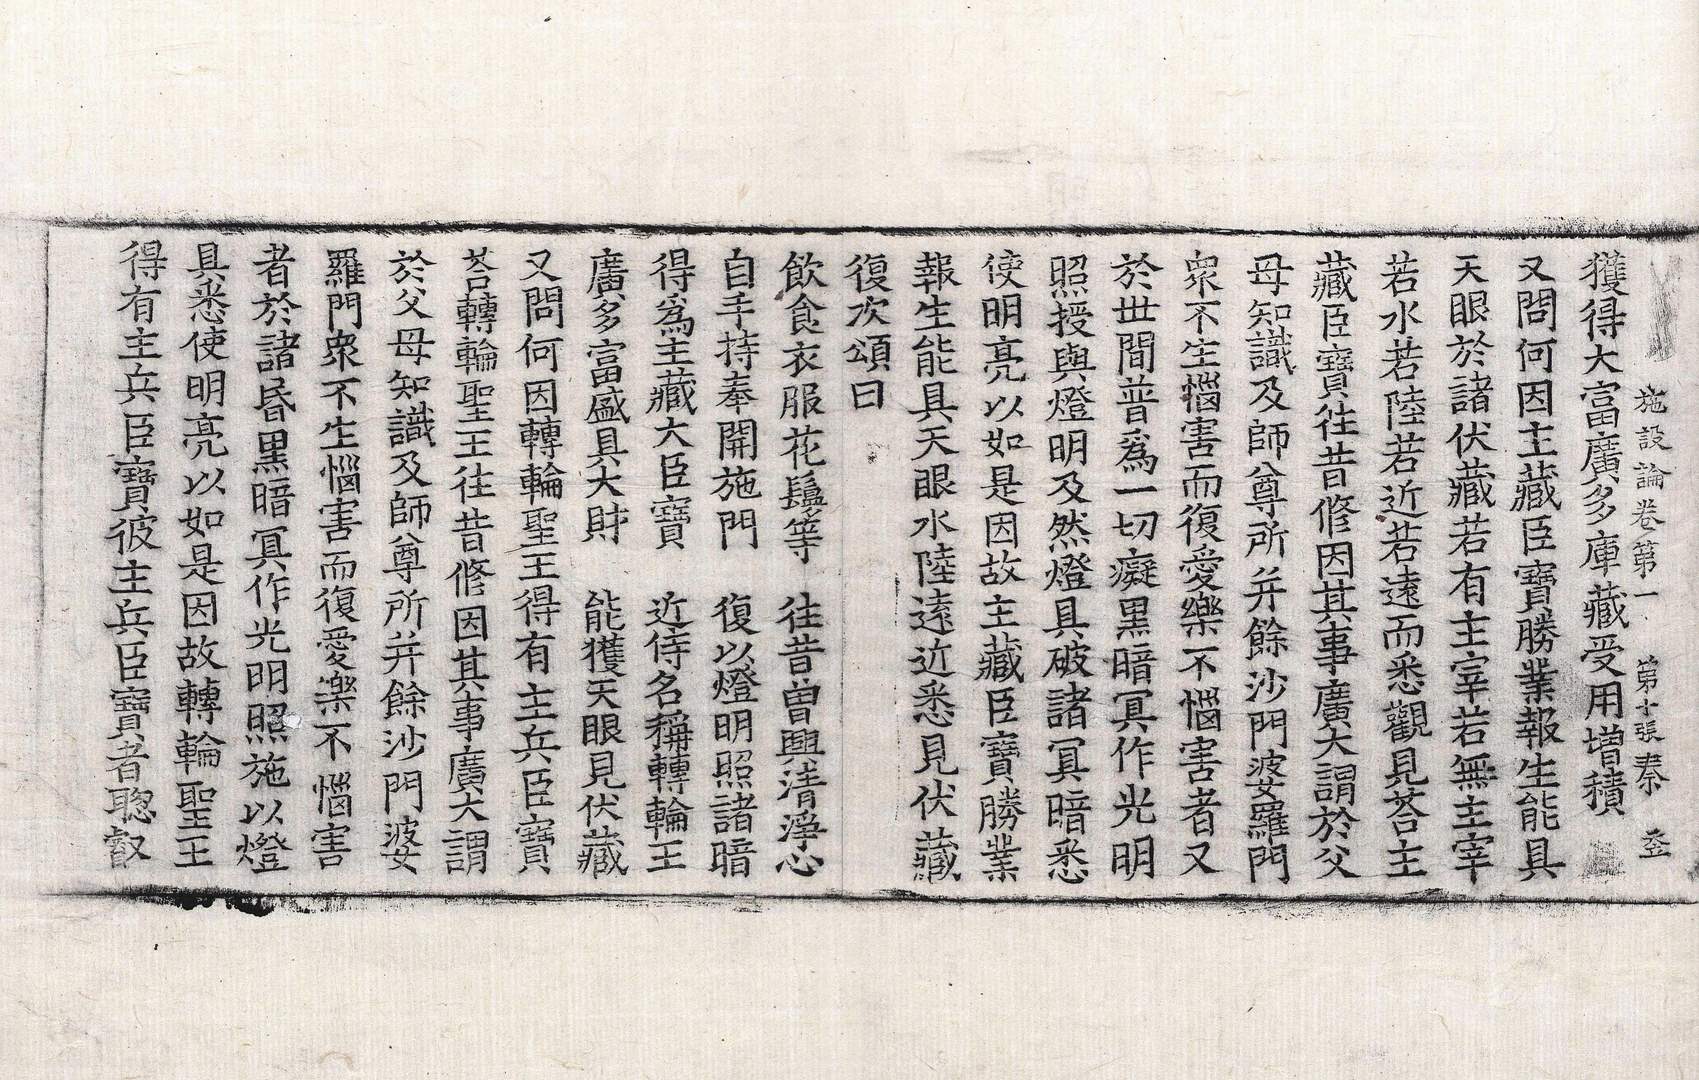 施設論卷第一 第十張 秦
獲得大富廣多庫藏受用增積
又問何因主藏臣寶勝業報生能具
天眼於諸伏藏若有主宰若無主宰
若水若陸若近若遠而悉觀見荅主
藏臣寶往昔修因其事廣大謂於父
母知識及師尊所并餘沙門婆羅門
衆不生惱害而復愛樂不惱害者又
於世間普爲一切癡黑暗冥作光明
照授與燈明及然燈具破諸冥暗悉
使明亮以如是因故主藏臣寶勝業
報生能具天眼水陸遠近悉見伏藏
復次頌曰
飲食衣服花鬘等 往昔曾興清淨心
自手持奉開施門 復以燈明照諸暗
得爲主藏大臣寶 近侍名稱轉輪王
廣多富盛具大財 能獲天眼見伏藏
又問何因轉輪聖王得有主兵臣寶
荅轉輪聖王往昔修因其事廣大謂
於父母知識及師尊所并餘沙門婆
羅門衆不生惱害而復愛樂不惱害
者於諸昏黑暗冥作光明照施以燈
具悉使明亮以如是因故轉輪聖王
得有主兵臣寶彼主兵臣寶者聦叡